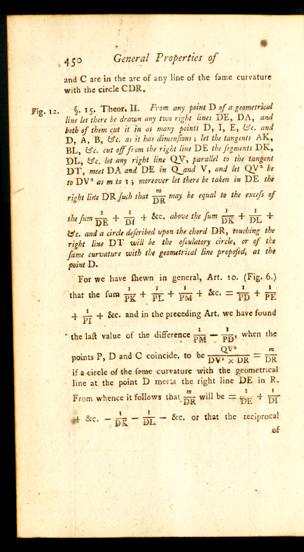 450 General Properties of
and C are in the arc of any line of the same curvature
with the circle CDR.
Fig. 12. §. 15. Theor. II. From any point D of a geometrical
line let there be drawn any two right lines DE, DA, and
both of them cut it in as many points D, I, E, &c. and
D, A, B, &c. as it has dimensions; let the tangents AK,
BL, &c. cut off from the right line DE the segments DK,
DL, &c. let any right line QV, parallel to the tangent
DT, meet DA and DE in Q and V, and let QV² be
to DV² as m to 1; moreover let there be taken in DE the
right line DR such that m/DR may be equal to the excess of
the sum 1/DE + 1/DI + &c. above the sum 1/DK + 1/DL +
&c. and a circle described upon the chord DR, touching the
right line DT will be the osculatory circle, or of the
same curvature with the geometrical line proposed, at the
point D.
For we have shewn in general, Art. 10. (Fig. 6.)
that the sum 1/PK + 1/PL + 1/PM + &c. = 1/PD + 1/PE
+ 1/PI + &c. and in the preceding Art. we have found
the last value of the difference 1/PM − 1/PD, when the
points P, D and C coincide, to be QV²/DV² × DR = m/DR
if a circle of the same curvature with the geometrical
line at the point D meets the right line DE in R.
From whence it follows that m/DR will be = 1/DE + 1/DI
+ &c. − 1/DK − 1/DL − &c. or that the reciprocal
of